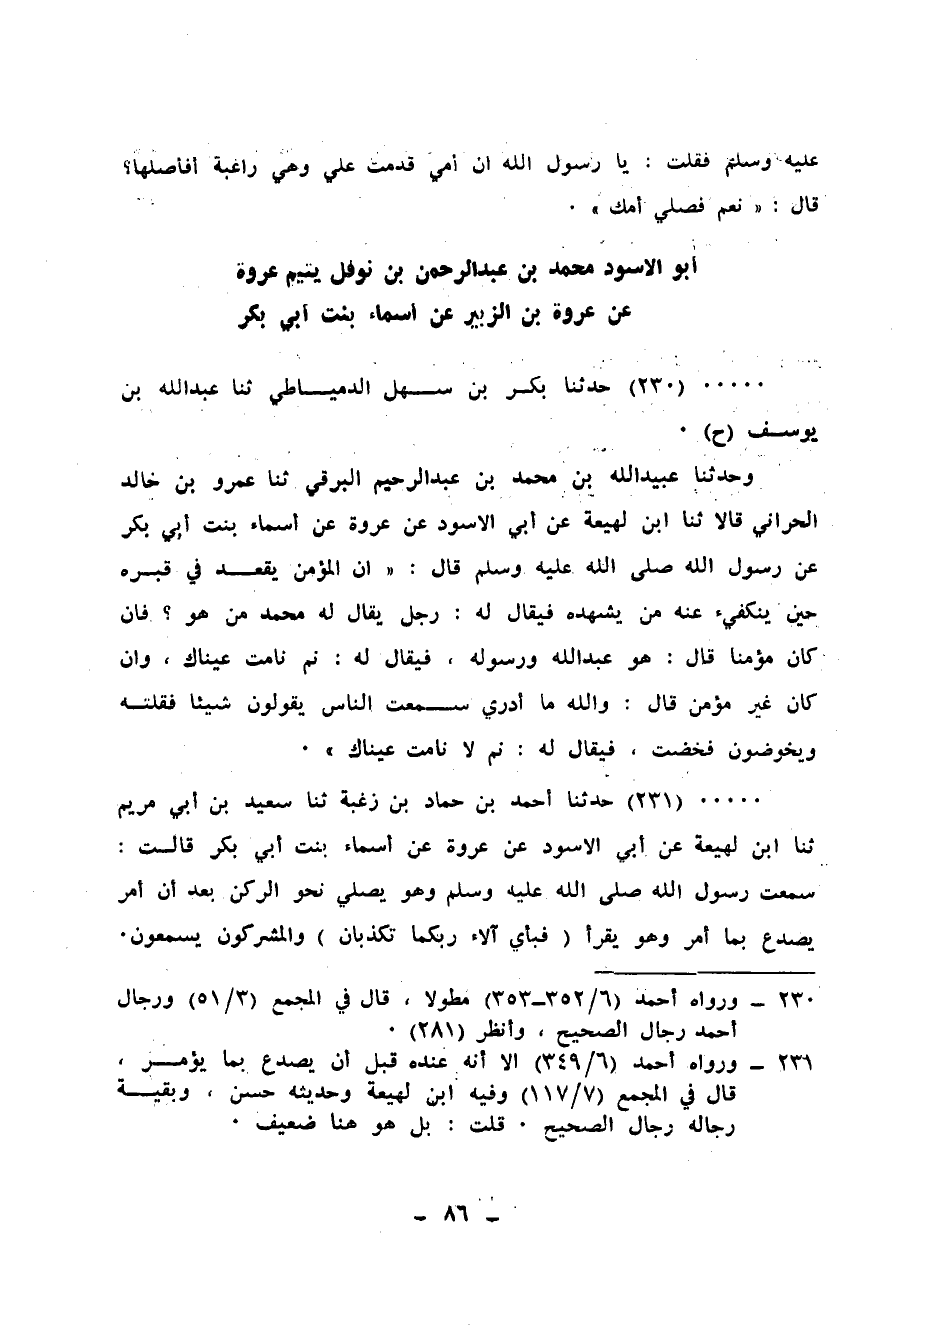 عليه وسلم فقلت : يا رسول الله ان أمي قدمت علي وهي راغبة أفأصلها؟
قال : « نعم فصلي أمك » ٠
أبو الاسود محمد بن عبدالرحمن بن نوفل يتيم عروة
عن عروة بن الزبير عن أسماء بنت أبي بكر
٠٠٠٠٠ (٢٣٠) حدثنا بكر بن سهل الدمياطي ثنا عبدالله بن
يوسف (ح) ٠
وحدثنا عبيدالله بن محمد بن عبدالرحيم البرقي ثنا عمرو بن خالد
الحراني قالا ثنا ابن لهيعة عن أبي الاسود عن عروة عن أسماء بنت أبي بكر
عن رسول الله صلى الله عليه وسلم قال : « ان المؤمن يقعد في قبره
حين ينكفيء عنه من يشهده فيقال له : رجل يقال له محمد من هو ؟ فان
كان مؤمنا قال : هو عبدالله ورسوله ، فيقال له : نم نامت عيناك ، وان
كان غير مؤمن قال : والله ما أدري سمعت الناس يقولون شيئا فقلته
ويخوضون فخضت ، فيقال له : نم لا نامت عيناك » ٠
٠٠٠٠٠ (٢٣١) حدثنا أحمد بن حماد بن زغبة ثنا سعيد بن أبي مريم
ثنا ابن لهيعة عن أبي الاسود عن عروة عن أسماء بنت أبي بكر قالت :
سمعت رسول الله صلى الله عليه وسلم وهو يصلي نحو الركن بعد أن أمر
يصدع بما أمر وهو يقرأ ( فبأي آلاء ربكما تكذبان ) والمشركون يسمعون٠
٢٣٠ ـ ورواه أحمد (٦/٣٥٢ـ٣٥٣) مطولا ، قال في المجمع (٣/٥١) ورجال
أحمد رجال الصحيح ، وأنظر (٢٨١) ٠
٢٣١ ـ ورواه أحمد (٦/٣٤٩) الا أنه عنده قبل أن يصدع بما يؤمر ،
قال في المجمع (٧/١١٧) وفيه ابن لهيعة وحديثه حسن ، وبقية
رجاله رجال الصحيح ٠ قلت : بل هو هنا ضعيف ٠
ـ ٨٦ ـ